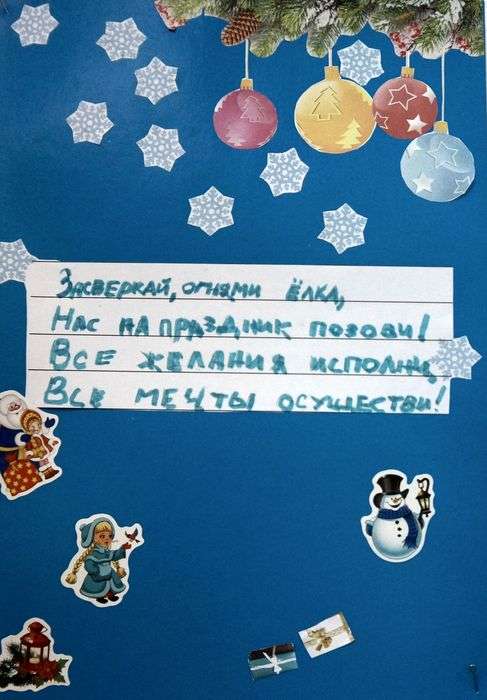 Засверкай, огнями ёлка,
Нас на праздник позови!
Все желания исполни,
Все мечты осуществи!